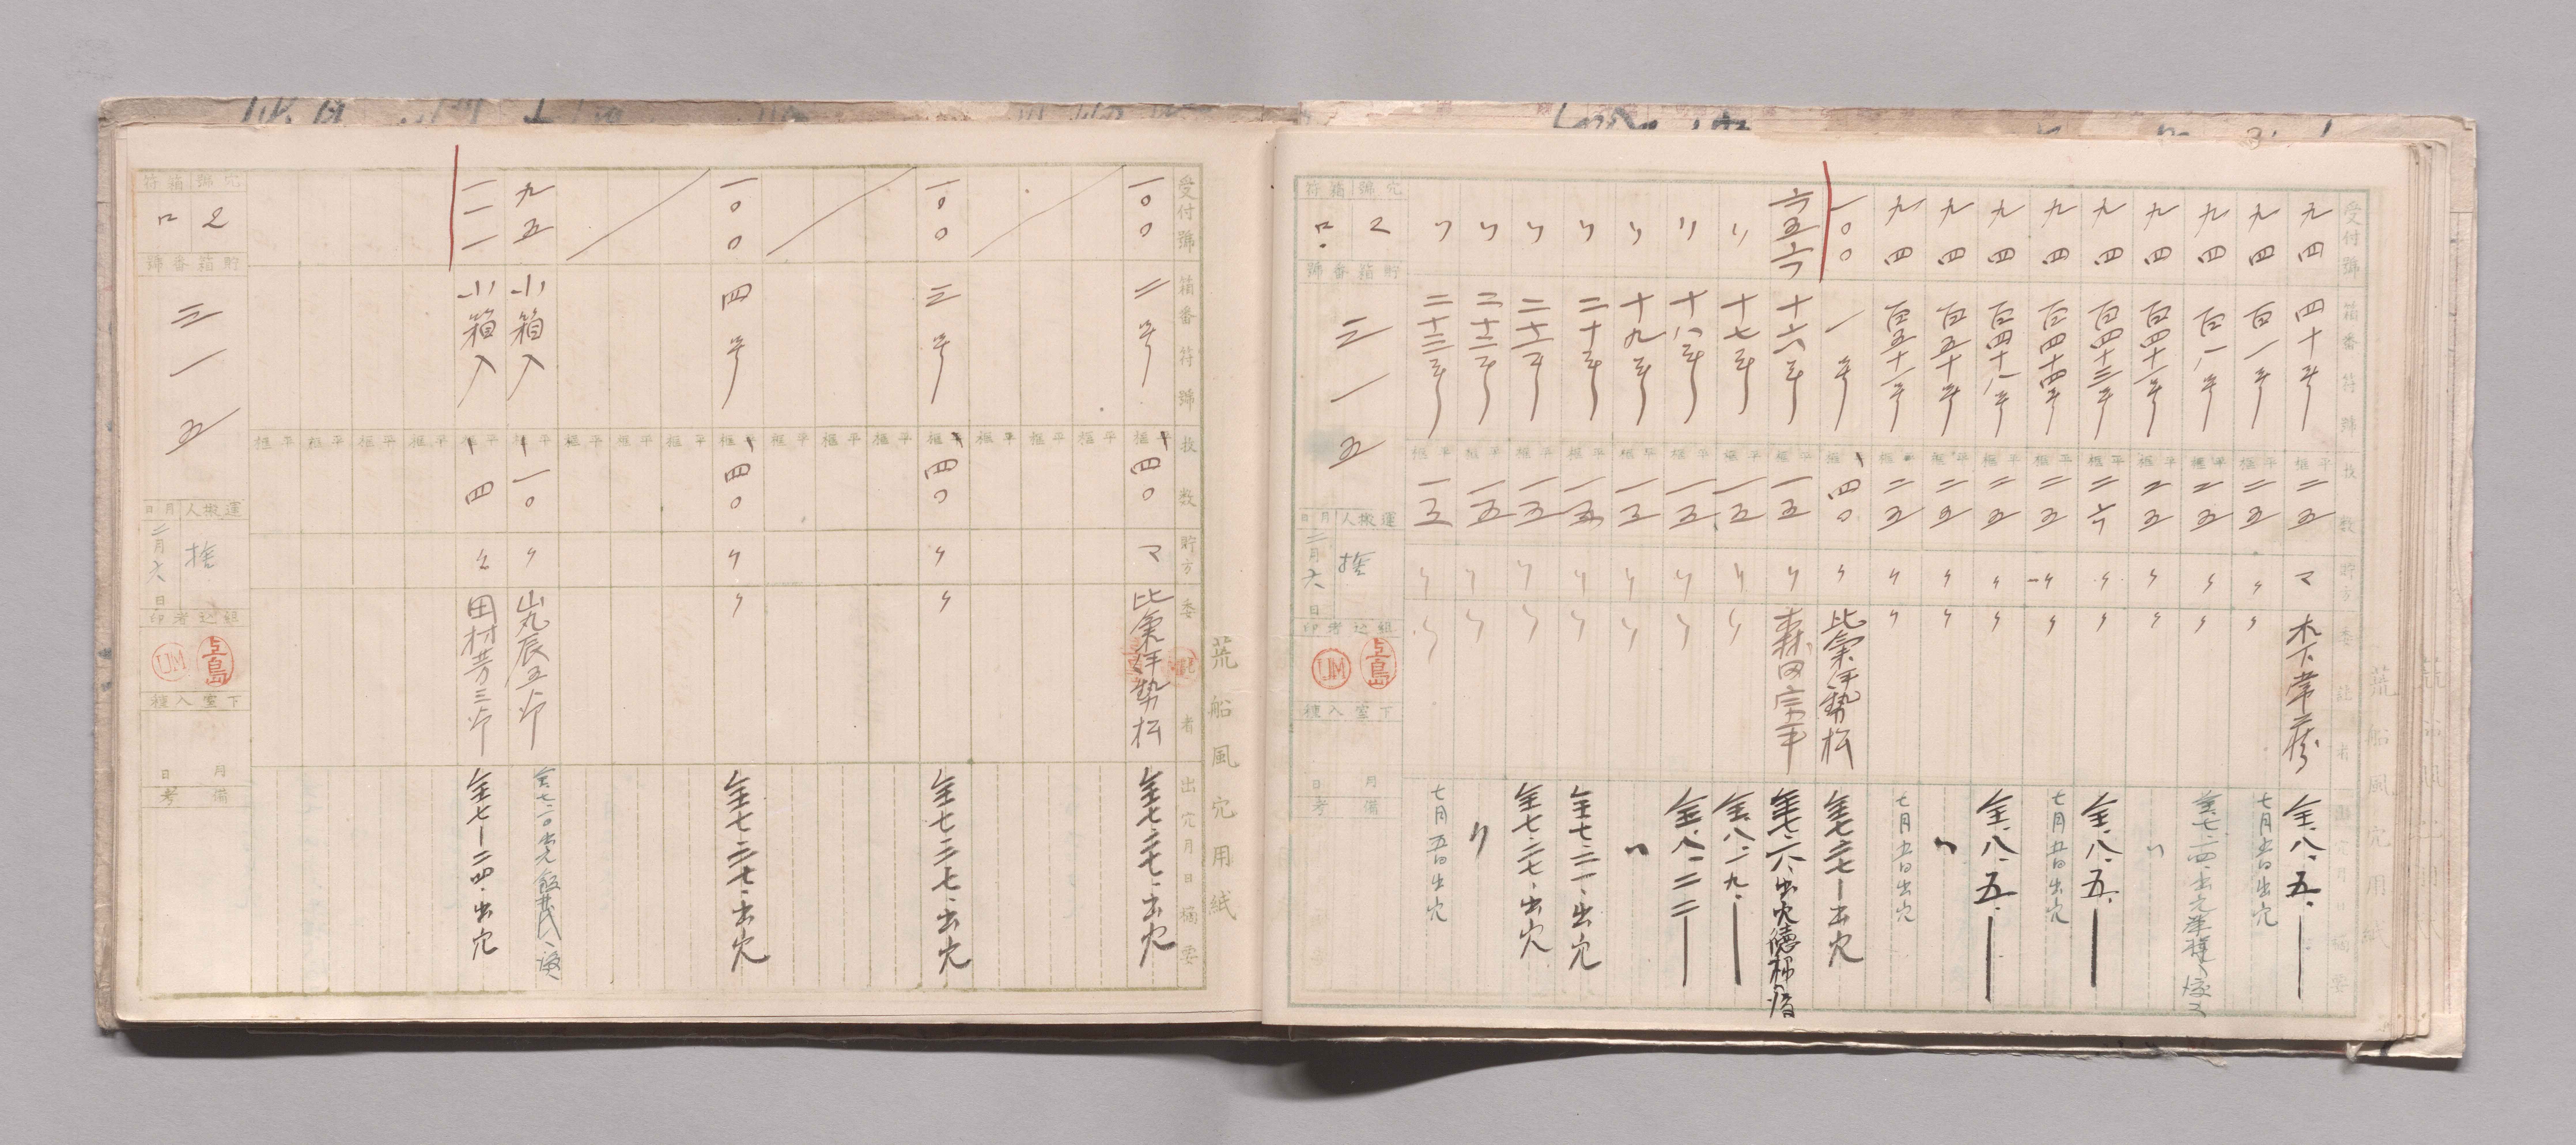 荒船風穴用紙
受付號 箱番符號 枚数 貯方 委託者 出穴月日摘要
九四 四十号 平框 二五 マ 木下常蔵 全、八、五、
九四 百一号 平框 二五 〃 〃 七月五日出穴
九四 百八号 平框 二五 〃 〃
九四 百四十一号 平框 二五 〃 〃 〃
九四 百四十三号 平框 二六 〃 〃 全、八、五、
九四 百四十四号 平框 二五 〃 〃 七月五日出穴
九四 百四十八号 平框 二五 〃 〃 全、八、五、
九四 百五十号 平框 二五 〃 〃 〃
九四 百五十一号 平框 二五 〃 〃 七月五日出穴
一〇〇 一号 平框 四〇 〃 比氣伊勢松 全七、二七、出穴
六五六 十六号 平框 一五 〃 森田宗平
〃 十七号 平框 一五 〃 〃 全、八、一九、
〃 十八号 平框 一五 〃 〃 全、八、二二
〃 十九号 平框 一五 〃 〃 〃
〃 二十号 平框 一五 〃 〃 全七、二一、出穴
〃 二十一号 平框 一五 〃 〃 全七、二七、出穴
〃 二十二号 平框 一五 〃 〃 〃
〃 二十三号 平框 一五 〃 〃 七月五日出穴
穴號 箱符
2 ロ
貯箱番號
三一五
運搬人 月日
捨 二月六日
組込者印
上島 UM
下室入種
月 日
備考
荒船風穴用紙
受付號 箱番符號 枚数 貯方 委託者 出穴月日摘要
一〇〇 二号 平框 四〇 マ 比氣伊勢松 全七、二七、出穴
一〇〇 三号 平框 四〇 〃 〃 全七、二七、出穴
一〇〇 四号 平框 四〇 〃 〃 全七、二七、出穴
九五 小箱入 平框 一〇 〃 丸山辰五郎
一一一 小箱入 平框 四 田村芳三郎 全七、二四、出穴
穴號 箱符
2 ロ
貯箱番號
三一五
運搬人 月日
捨 二月六日
組込者印
上島 UM
下室入種
月 日
備考